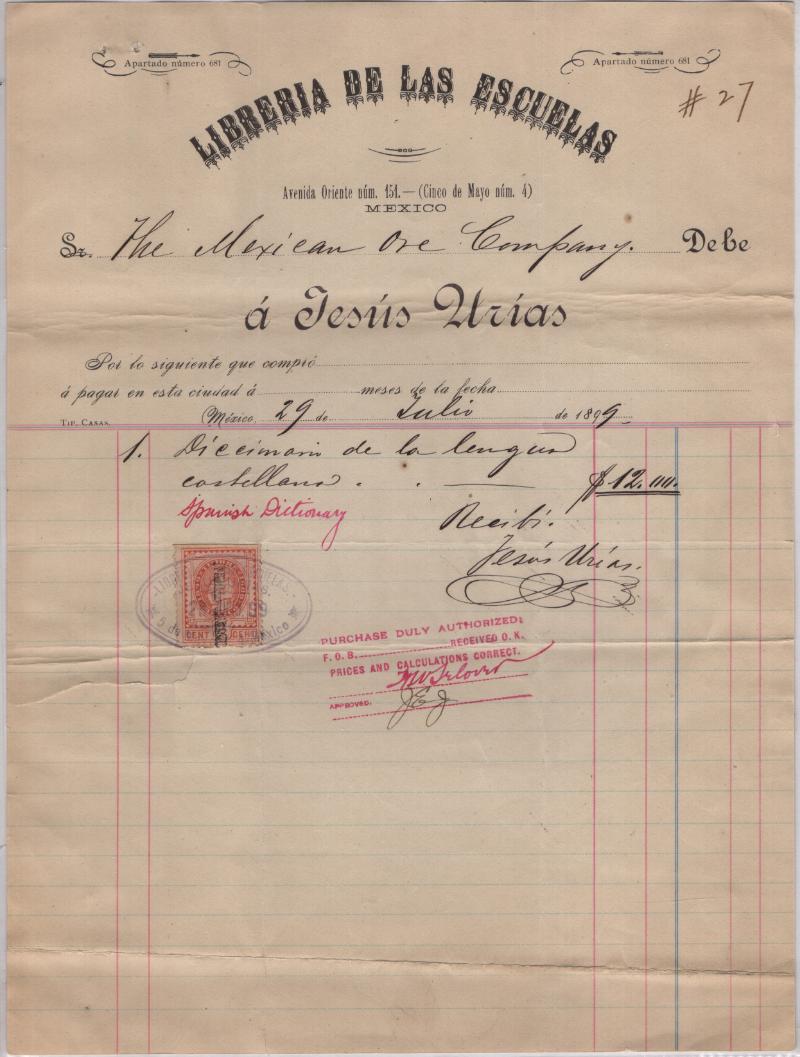 Apartado número 681
Apartado número 681
# 27
LIBRERIA DE LAS ESCUELAS
Avenida Oriente núm. 151.—(Cinco de Mayo núm. 4)
MEXICO
Sr. The Mexican Ore Company. Debe
á Jesús Urías
Por lo siguiente que compró
á pagar en esta ciudad á meses de la fecha
TIP. CASAS.
(México 29 de Julio de 1899.
1. Diccionario de la lengua
castellana . . — $12.00.
Spanish Dictionary
Recibi.
Jesús Urías.
PURCHASE DULY AUTHORIZED:
F. O. B. RECEIVED O. K.
PRICES AND CALCULATIONS CORRECT.
APPROVED. JEJ